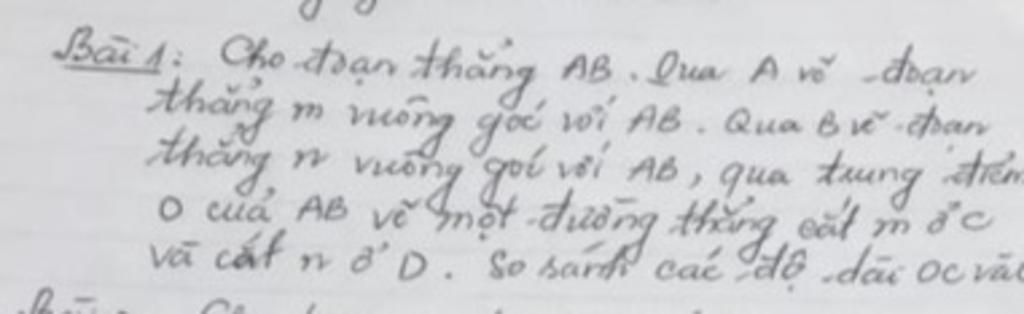 Bài 1: Cho đoạn thẳng AB. Qua A vẽ đoạn
thẳng m vuông góc với AB. Qua B vẽ đoạn
thẳng n vuông góc với AB, qua trung điểm
O của AB vẽ một đường thẳng cắt m ở C
và cắt n ở D. So sánh các độ dài OC và